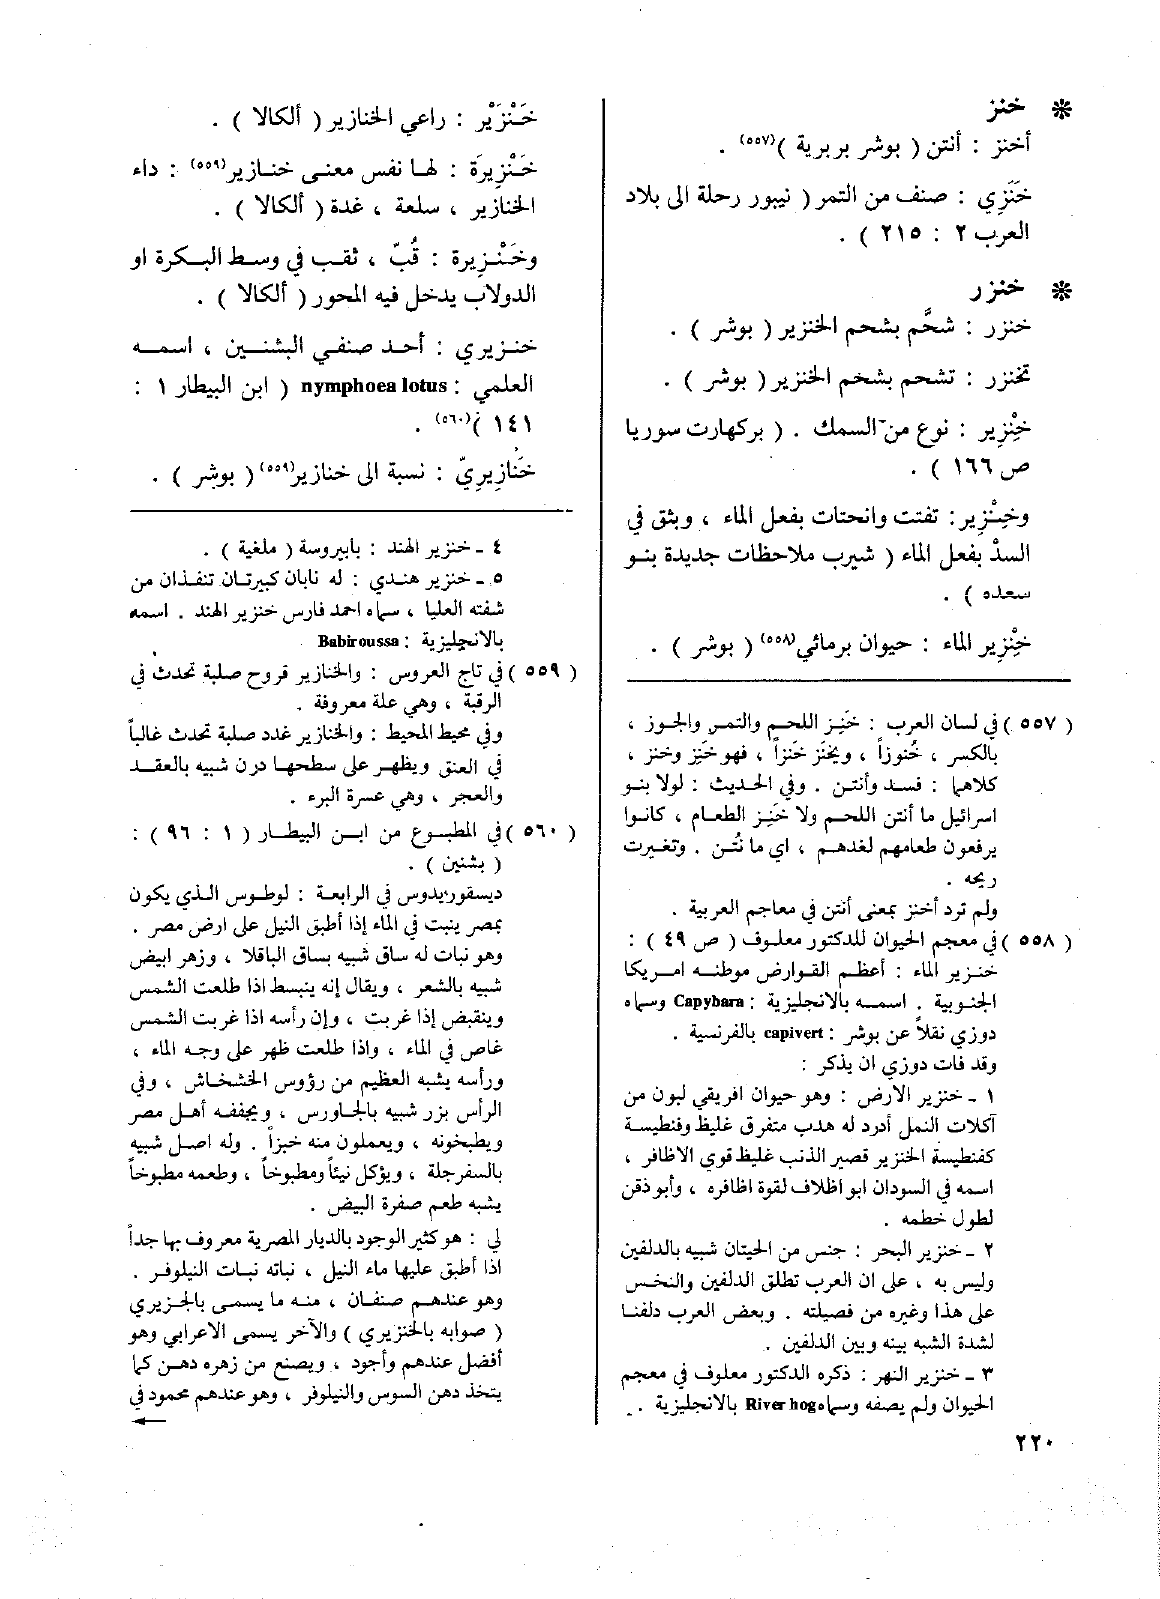 ❋ خنز
أخنز : أنتن ( بوشر بربرية )(٥٥٧) .
خَنَزي : صنف من التمر ( نيبور رحلة الى بلاد
العرب ٢ : ٢١٥ ) .
❋ خنزر
خنزر : شحَّم بشحم الخنزير ( بوشر ) .
تخنزر : تشحم بشخم الخنزير ( بوشر ) .
خِنْزِير : نوع من السمك . ( بركهارت سوريا
ص ١٦٦ ) .
وخِنْزِير : تفتت وانحتات بفعل الماء ، وبثق في
السدّ بفعل الماء ( شيرب ملاحظات جديدة بنو
سعده ) .
خِنْزِير الماء : حيوان برمائي(٥٥٨) ( بوشر ) .
( ٥٥٧ ) في لسان العرب : خَنِز اللحم والتمر والجوز ،
بالكسر ، خُنوزاً ، ويخنَز خَنزاً ، فهو خَنِز وخنز ،
كلاهما : فسد وأنتن . وفي الحديث : لولا بنو
اسرائيل ما أنتن اللحم ولا خَنِز الطعام ، كانوا
يرفعون طعامهم لغدهم ، اي ما نَتُن . وتغيرت
ريحه .
ولم ترد أخنز بمعنى أنتن في معاجم العربية .
( ٥٥٨ ) في معجم الحيوان للدكتور معلوف ( ص ٤٩ ) :
خنزير الماء : أعظم القوارض موطنه امريكا
الجنوبية . اسمه بالانجليزية : Capybara وسماه
دوزي نقلاً عن بوشر : capivert بالفرنسية .
وقد فات دوزي ان يذكر :
١ ـ خنزير الارض : وهو حيوان افريقي لبون من
آكلات النمل أدرد له هدب متفرق غليظ وفنطيسة
كفنطيسة الخنزير قصير الذنب غليظ قوي الاظافر ،
اسمه في السودان ابو اظلاف لقوة اظافره ، وأبو ذقن
لطول خطمه .
٢ ـ خنزير البحر : جنس من الحيتان شبيه بالدلفين
وليس به ، على ان العرب تطلق الدلفين والنخس
على هذا وغيره من فصيلته . وبعض العرب دلفنا
لشدة الشبه بينه وبين الدلفين .
٣ ـ خنزير النهر : ذكره الدكتور معلوف في معجم
الحيوان ولم يصفه وسماه River hog بالانجليزية .
خَنْزَيْر : راعي الخنازير ( ألكالا ) .
خَنْزِيرَة : لها نفس معنى خنازير(٥٥٩) : داء
الخنازير ، سلعة ، غدة ( ألكالا ) .
وخَنْزيرة : قُبّ ، ثقب في وسط البكرة او
الدولاب يدخل فيه المحور ( ألكالا ) .
خنزيري : أحد صنفي البشنين ، اسمه
العلمي : nymphoea lotus ( ابن البيطار ١ :
١٤١ )(٥٦٠) .
خَنازِيرِيّ : نسبة الى خنازير(٥٥٩) ( بوشر ) .
٤ ـ خنزير الهند : بابيروسة ( ملغية ) .
٥ ـ خنزير هندي : له نابان كبيرتان تنفذان من
شفته العليا ، سماه احمد فارس خنزير الهند . اسمه
بالانجليزية : Babiroussa
( ٥٥٩ ) في تاج العروس : والخنازير قروح صلبة تحدث في
الرقبة ، وهي علة معروفة .
وفي محيط المحيط : والخنازير غدد صلبة تحدث غالباً
في العنق ويظهر على سطحها درن شبيه بالعقد
والعجر ، وهي عسرة البرء .
( ٥٦٠ ) في المطبوع من ابن البيطار ( ١ : ٩٦ ) :
( بشنين ) .
ديسقوريدوس في الرابعة : لوطوس الذي يكون
بمصر ينبت في الماء إذا أطبق النيل على ارض مصر .
وهو نبات له ساق شبيه بساق الباقلا ، وزهر ابيض
شبيه بالشعر ، ويقال إنه ينبسط اذا طلعت الشمس
وينقبض إذا غربت ، وإن رأسه اذا غربت الشمس
غاص في الماء ، واذا طلعت ظهر على وجه الماء ،
ورأسه يشبه العظيم من رؤوس الخشخاش ، وفي
الرأس بزر شبيه بالجاورس ، ويجففه أهل مصر
ويطبخونه ، ويعملون منه خبزاً . وله اصل شبيه
بالسفرجلة ، ويؤكل نيئاً ومطبوخاً ، وطعمه مطبوخاً
يشبه طعم صفرة البيض .
لي : هو كثير الوجود بالديار المصرية معروف بها جداً
اذا أطبق عليها ماء النيل ، نباته نبات النيلوفر .
وهو عندهم صنفان ، منه ما يسمى بالجزيري
( صوابه بالخنزيري ) والآخر يسمى الاعرابي وهو
أفضل عندهم وأجود ، ويصنع من زهره دهن كما
يتخذ دهن السوس والنيلوفر ، وهو عندهم محمود في
٢٢٠